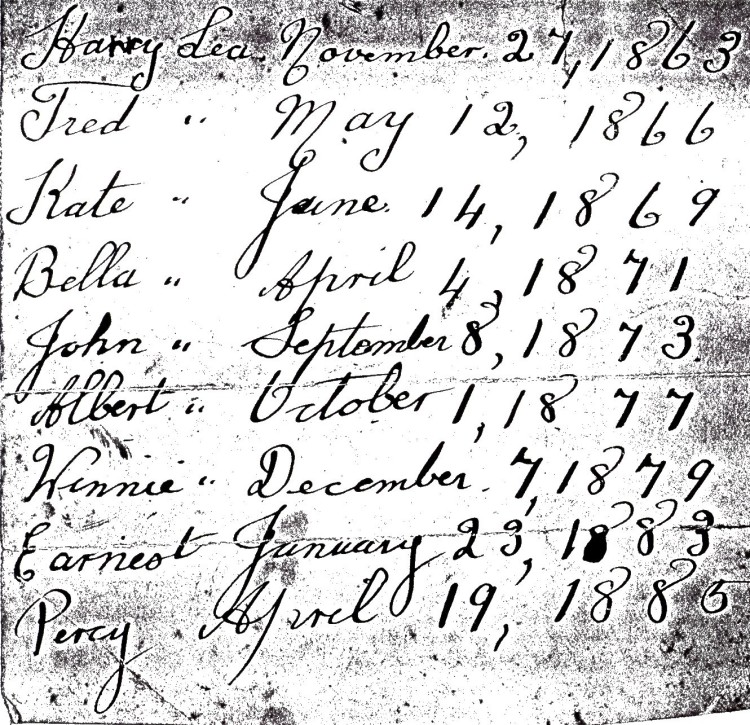 Harry Lea. November. 27, 1863
Fred " May 12, 1866
Kate " June. 14, 1869
Bella " April 4, 1871
John " September 8, 1873.
Albert " October 1, 1877
Winnie " December. 7, 1879
Earnest January 23, 1883
Percy April 19, 1885